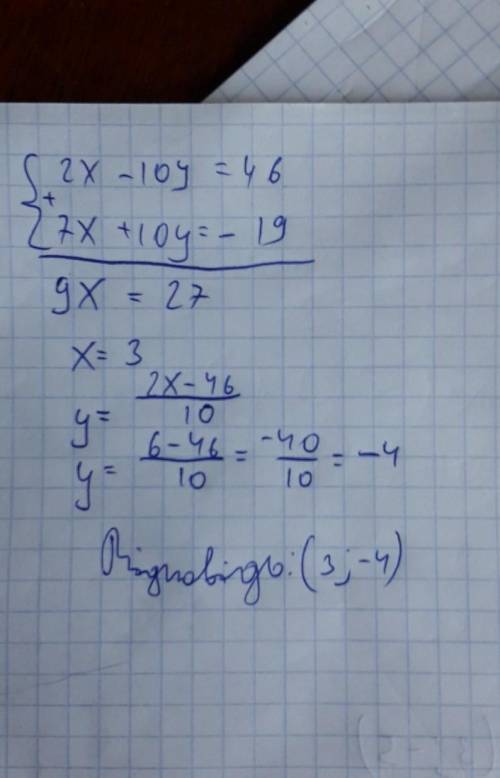 2x - 10y = 46
+
7x + 10y = - 19
9x = 27
x = 3
y = (2x - 46)/10
y = (6 - 46)/10 = -40/10 = -4
Відповідь: (3; -4)